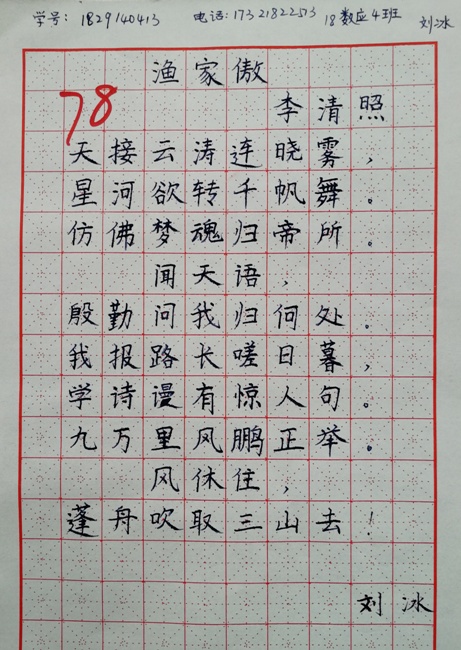 学号: 1829140413 电话: 17321822513 18数应4班 刘冰
渔家傲
78
李清照
天接云涛连晓雾,
星河欲转千帆舞。
仿佛梦魂归帝所。
闻天语,
殷勤问我归何处。
我报路长嗟日暮,
学诗谩有惊人句。
九万里风鹏正举。
风休住,
蓬舟吹取三山去!
刘冰